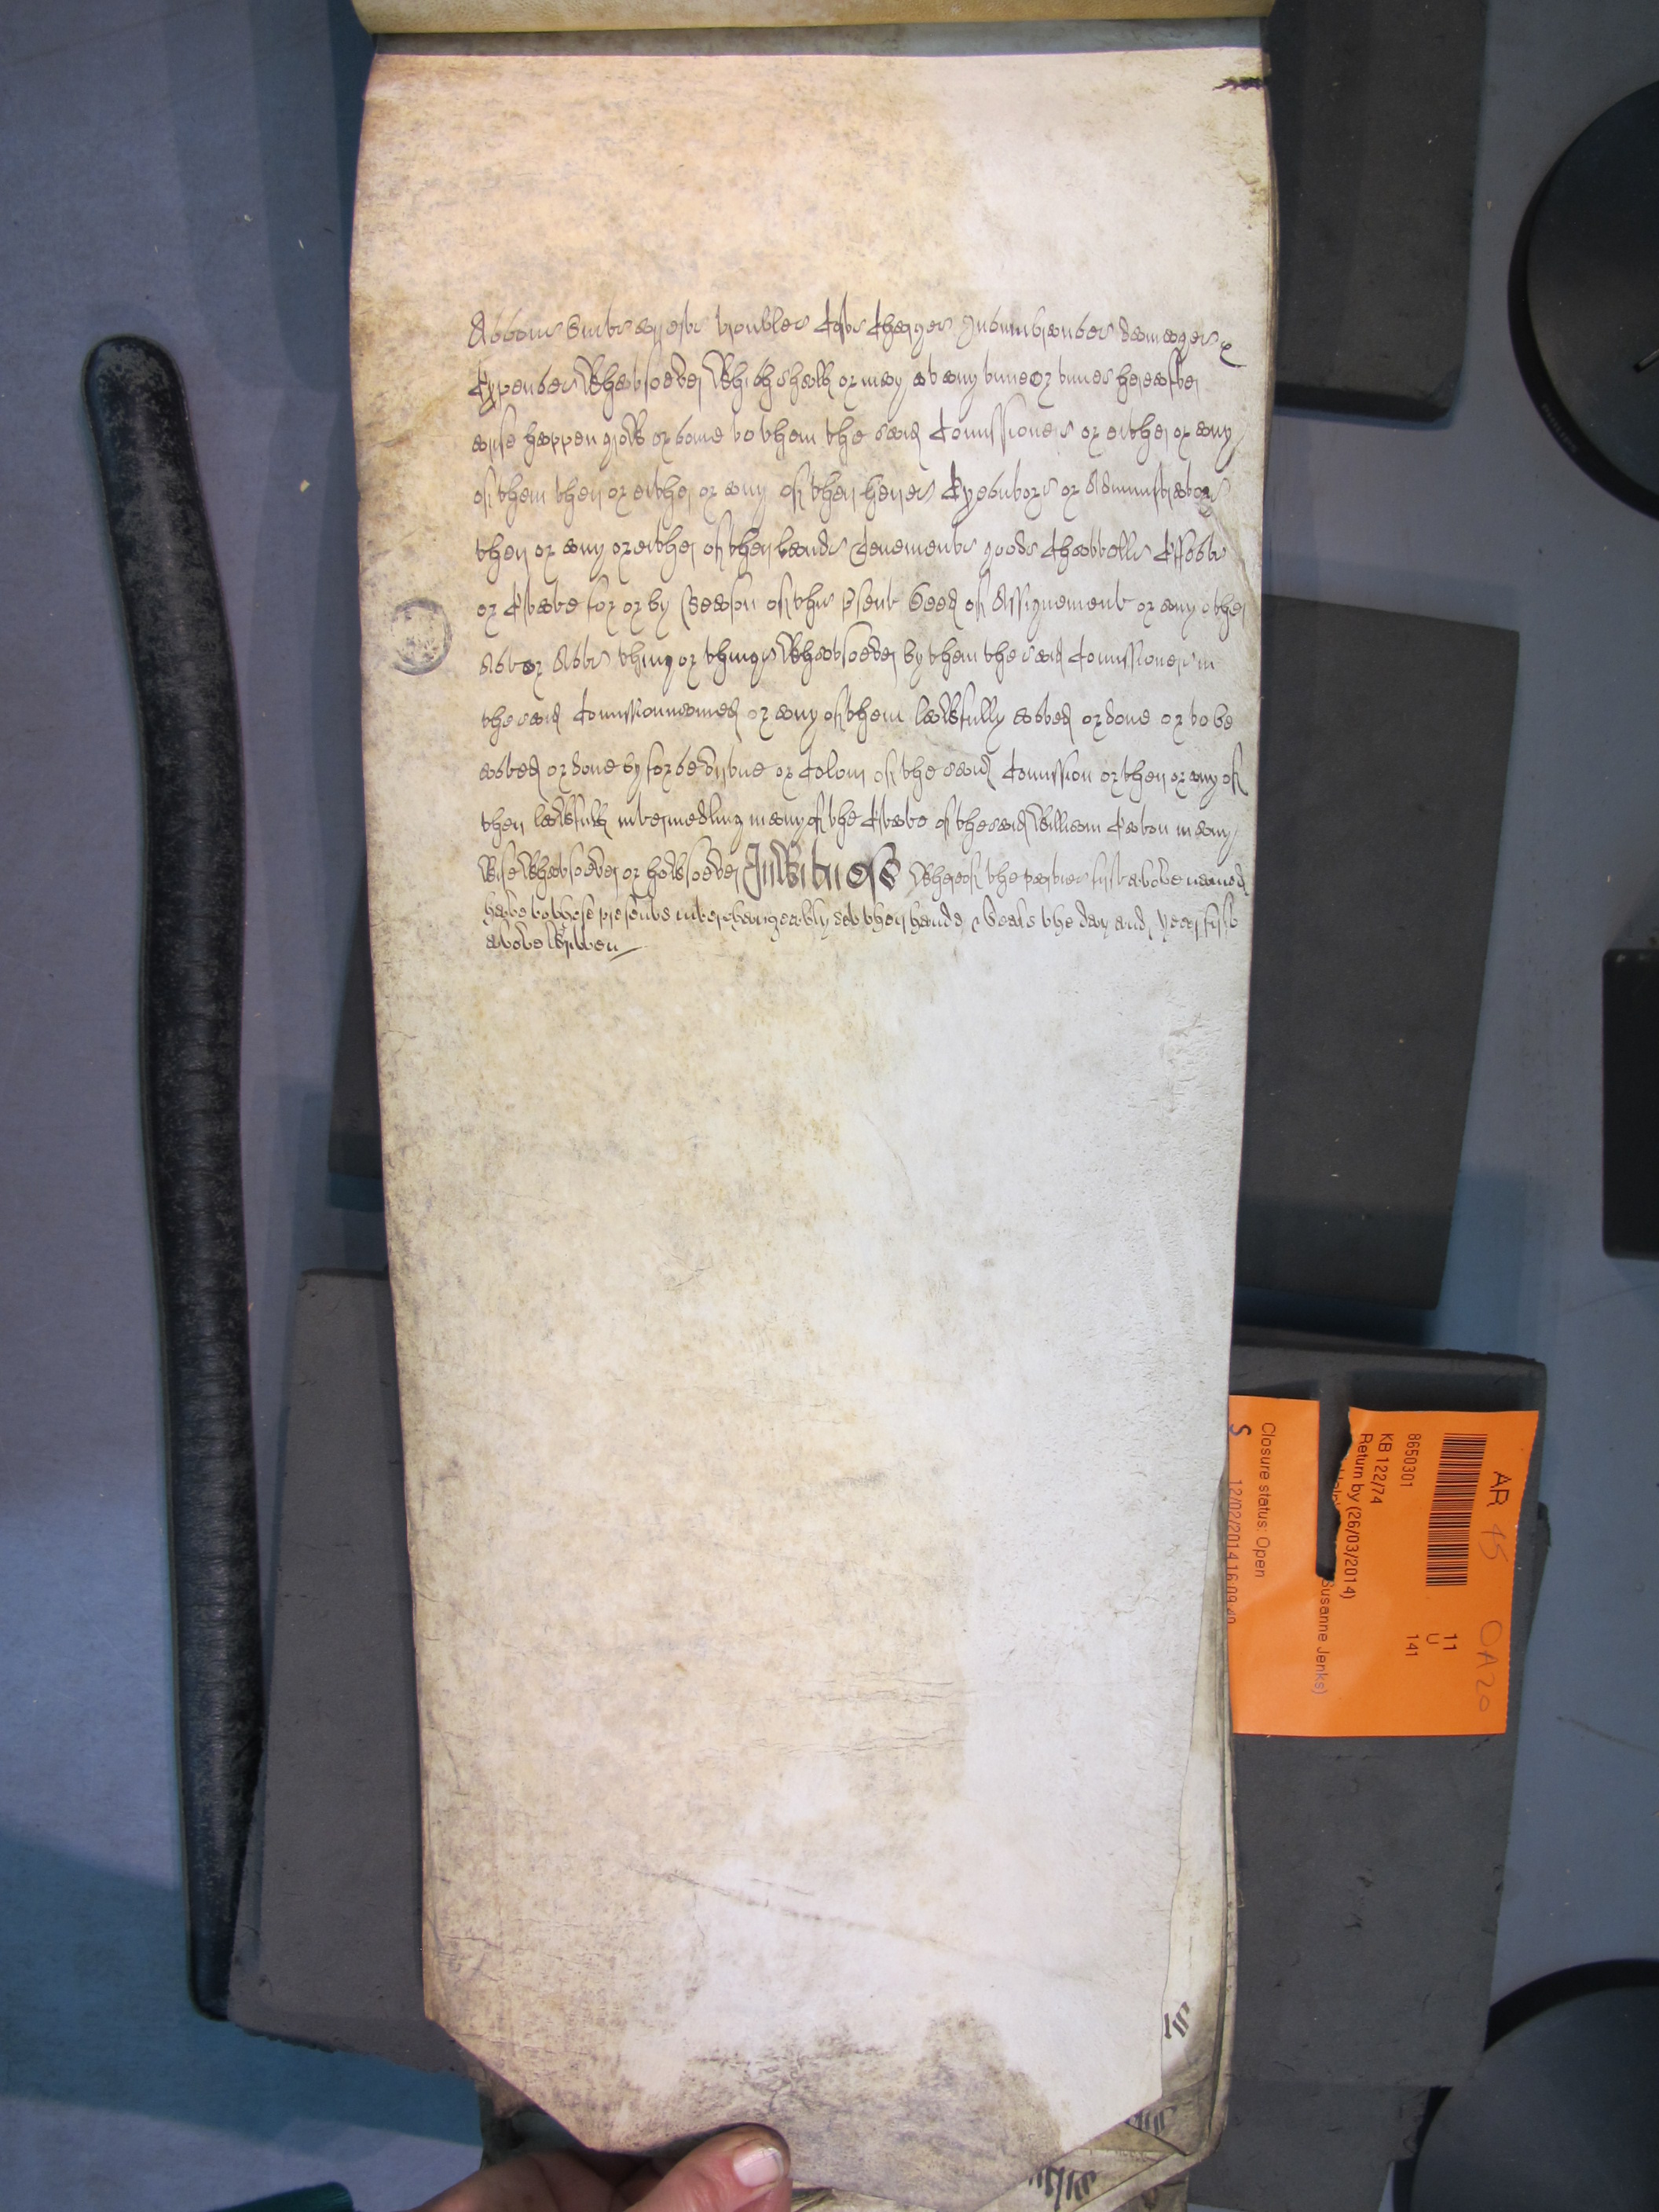 Accons Suits arrests troubles Costs Charges Incumbrances damages &
Expences Whatsoever Which shall or may at any time or times hereafter
arise happen grow or come to them the said Comissioners or either or any
of them their or either or any of their heires Executors or Administrators
their or any or either of their Lands Tenements goods Chattells Effects
or Estate for or by Reason of this psent Deed of Assignement or any other
Act or Acts thing or things Whatsoever by them the said Comissioners in
the said Comission named or any of them lawfully acted or done or to be
acted or done by force virtue or Colour of the said Comission or their or any of
their lawfull intermedling in any of the Estate of the said William Eaton in any
Wise Whatsoever or howsoever In Witness Whereof the parties first above named
have to these presents interchangeably set their hands & Seals the day and year first
above Written
AR 45 OA20
11
U
141
8650301
KB 122/74
Return by (26/03/2014)
Susanne Jenks)
Closure status: Open
S 12/02/2014 16:09:49